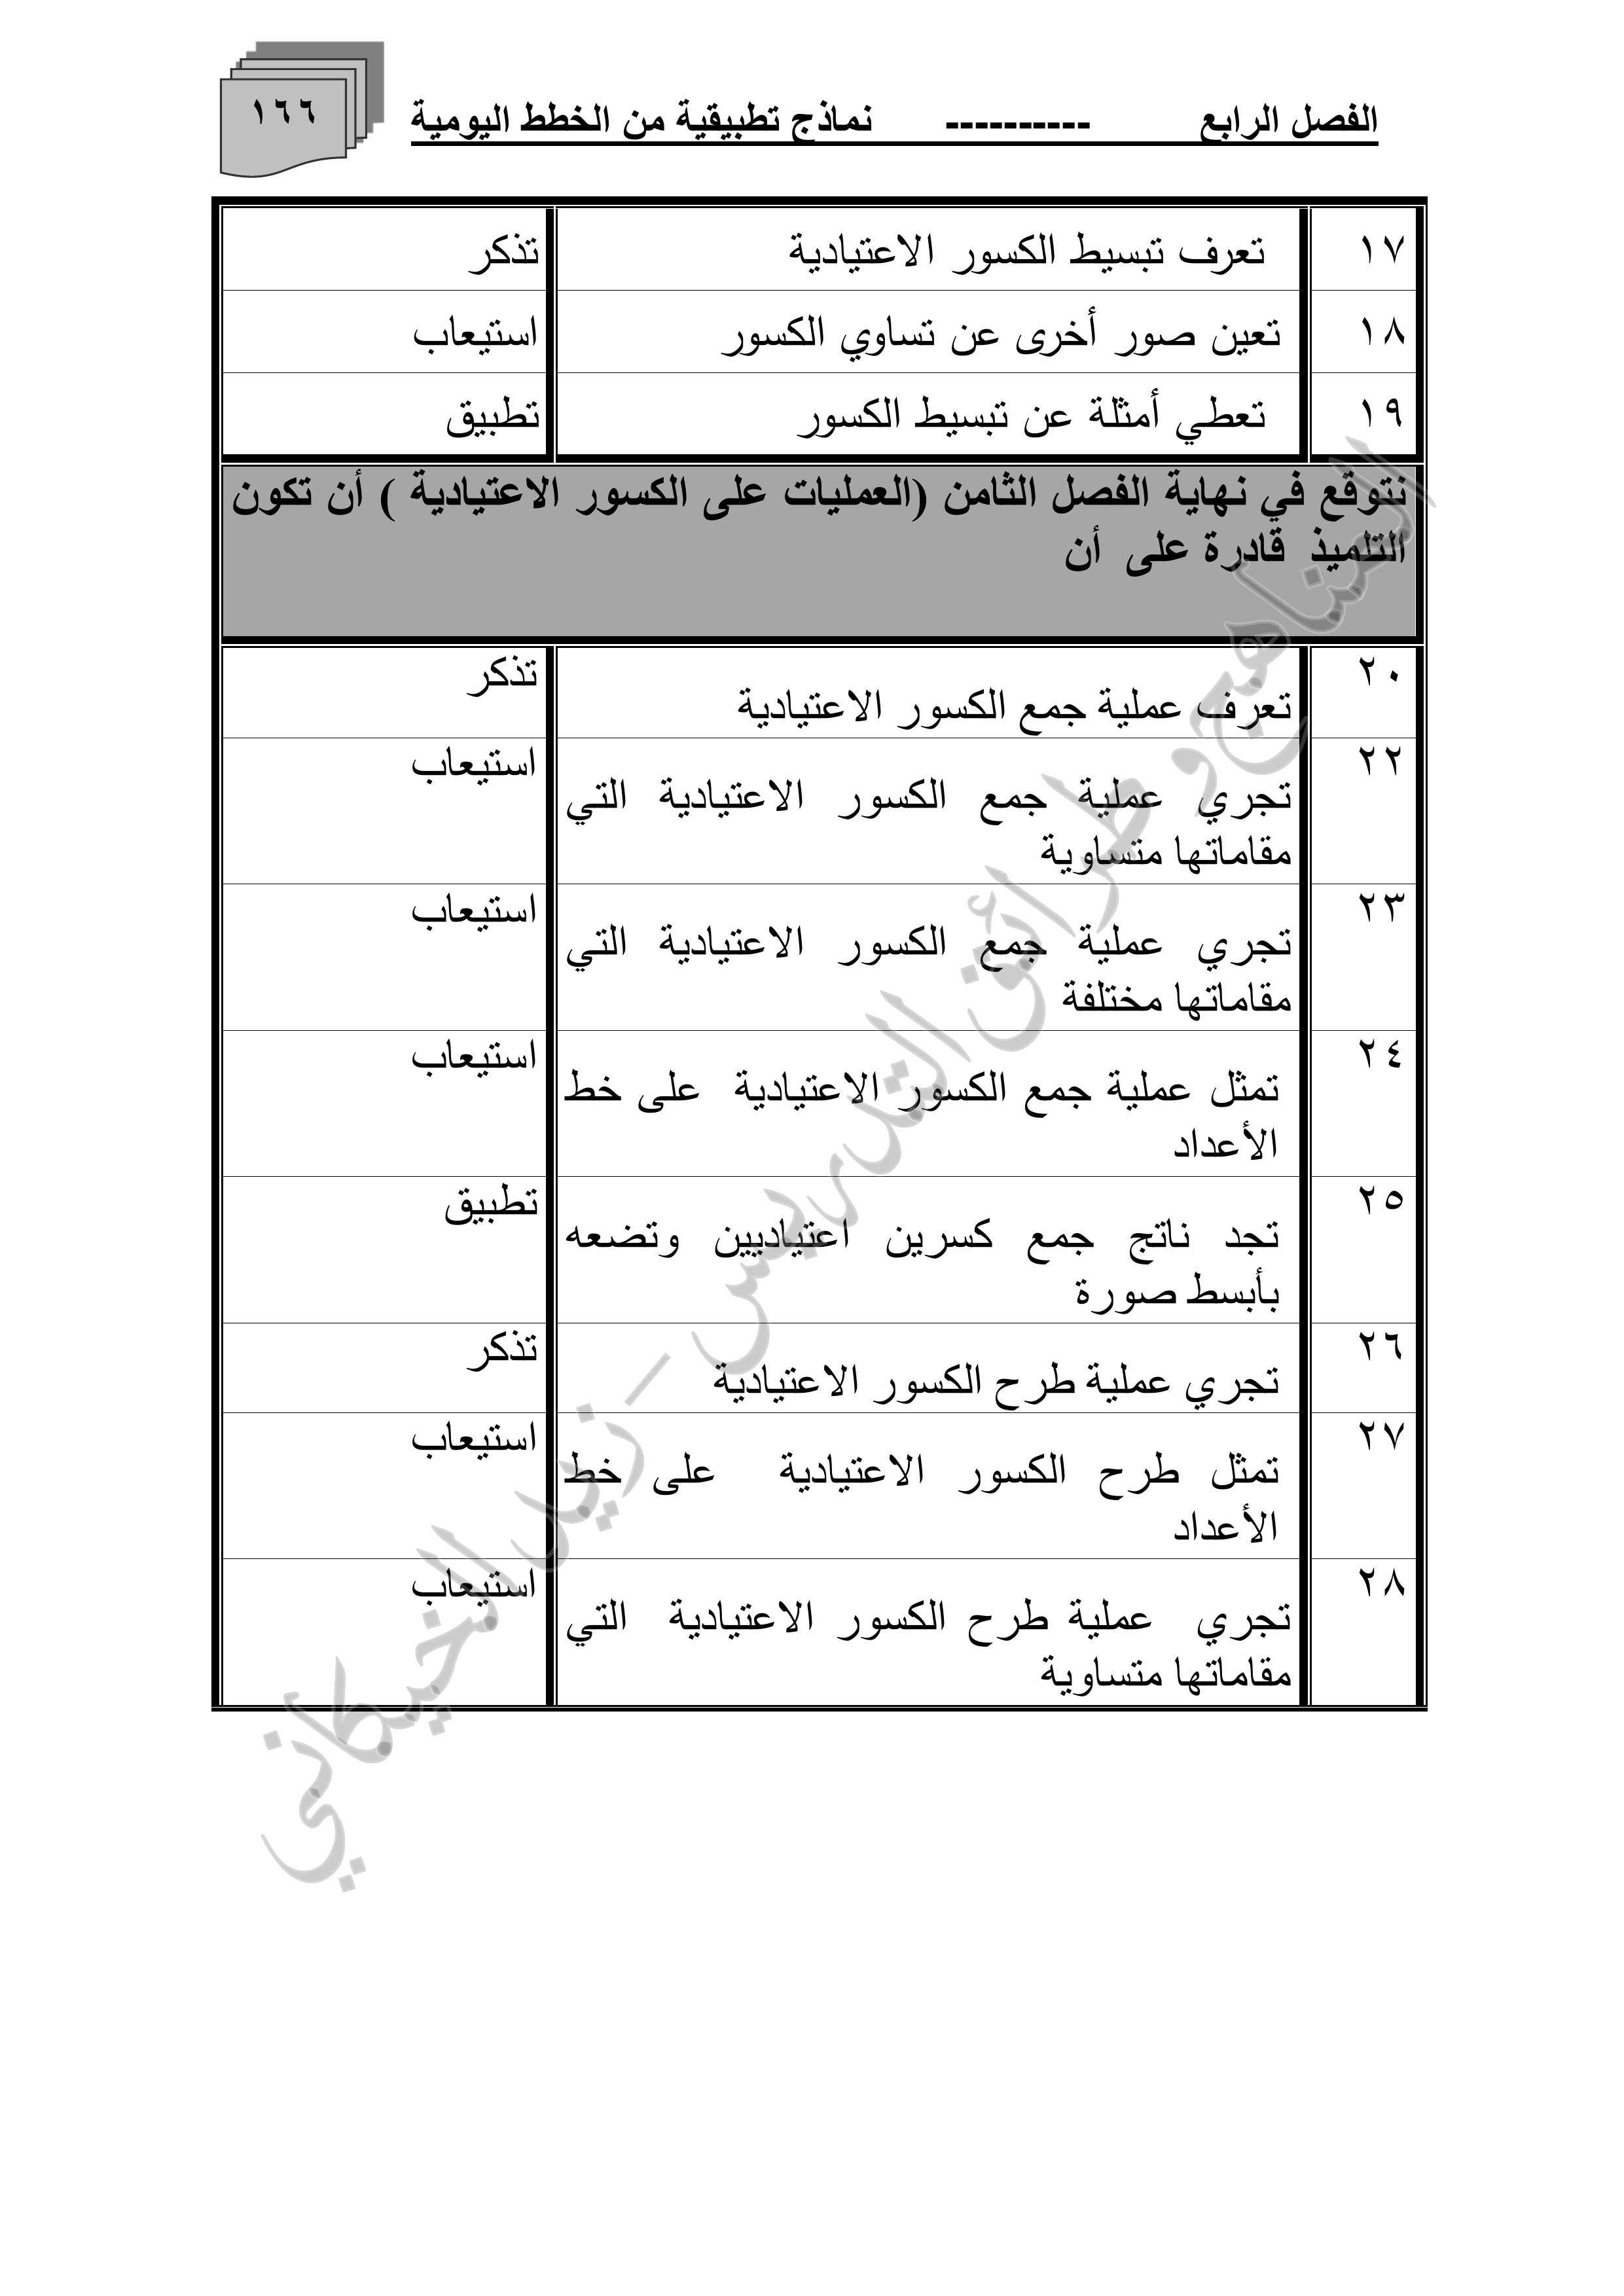 الفصل الرابع ---------- نماذج تطبيقية من الخطط اليومية ١٦٦
١٧ تعرف تبسيط الكسور الاعتيادية تذكر
١٨ تعين صور أخرى عن تساوي الكسور استيعاب
١٩ تعطي أمثلة عن تبسيط الكسور تطبيق
نتوقع في نهاية الفصل الثامن (العمليات على الكسور الاعتيادية ) أن تكون
التلميذ قادرة على أن
٢٠ تعرف عملية جمع الكسور الاعتيادية تذكر
٢٢ تجري عملية جمع الكسور الاعتيادية التي استيعاب
مقاماتها متساوية
٢٣ تجري عملية جمع الكسور الاعتيادية التي استيعاب
مقاماتها مختلفة
٢٤ تمثل عملية جمع الكسور الاعتيادية على خط استيعاب
الأعداد
٢٥ تجد ناتج جمع كسرين اعتياديين وتضعه تطبيق
بأبسط صورة
٢٦ تجري عملية طرح الكسور الاعتيادية تذكر
٢٧ تمثل طرح الكسور الاعتيادية على خط استيعاب
الأعداد
٢٨ تجري عملية طرح الكسور الاعتيادية التي استيعاب
مقاماتها متساوية
المناهج وطرائق التدريس – زيد الخيكاني